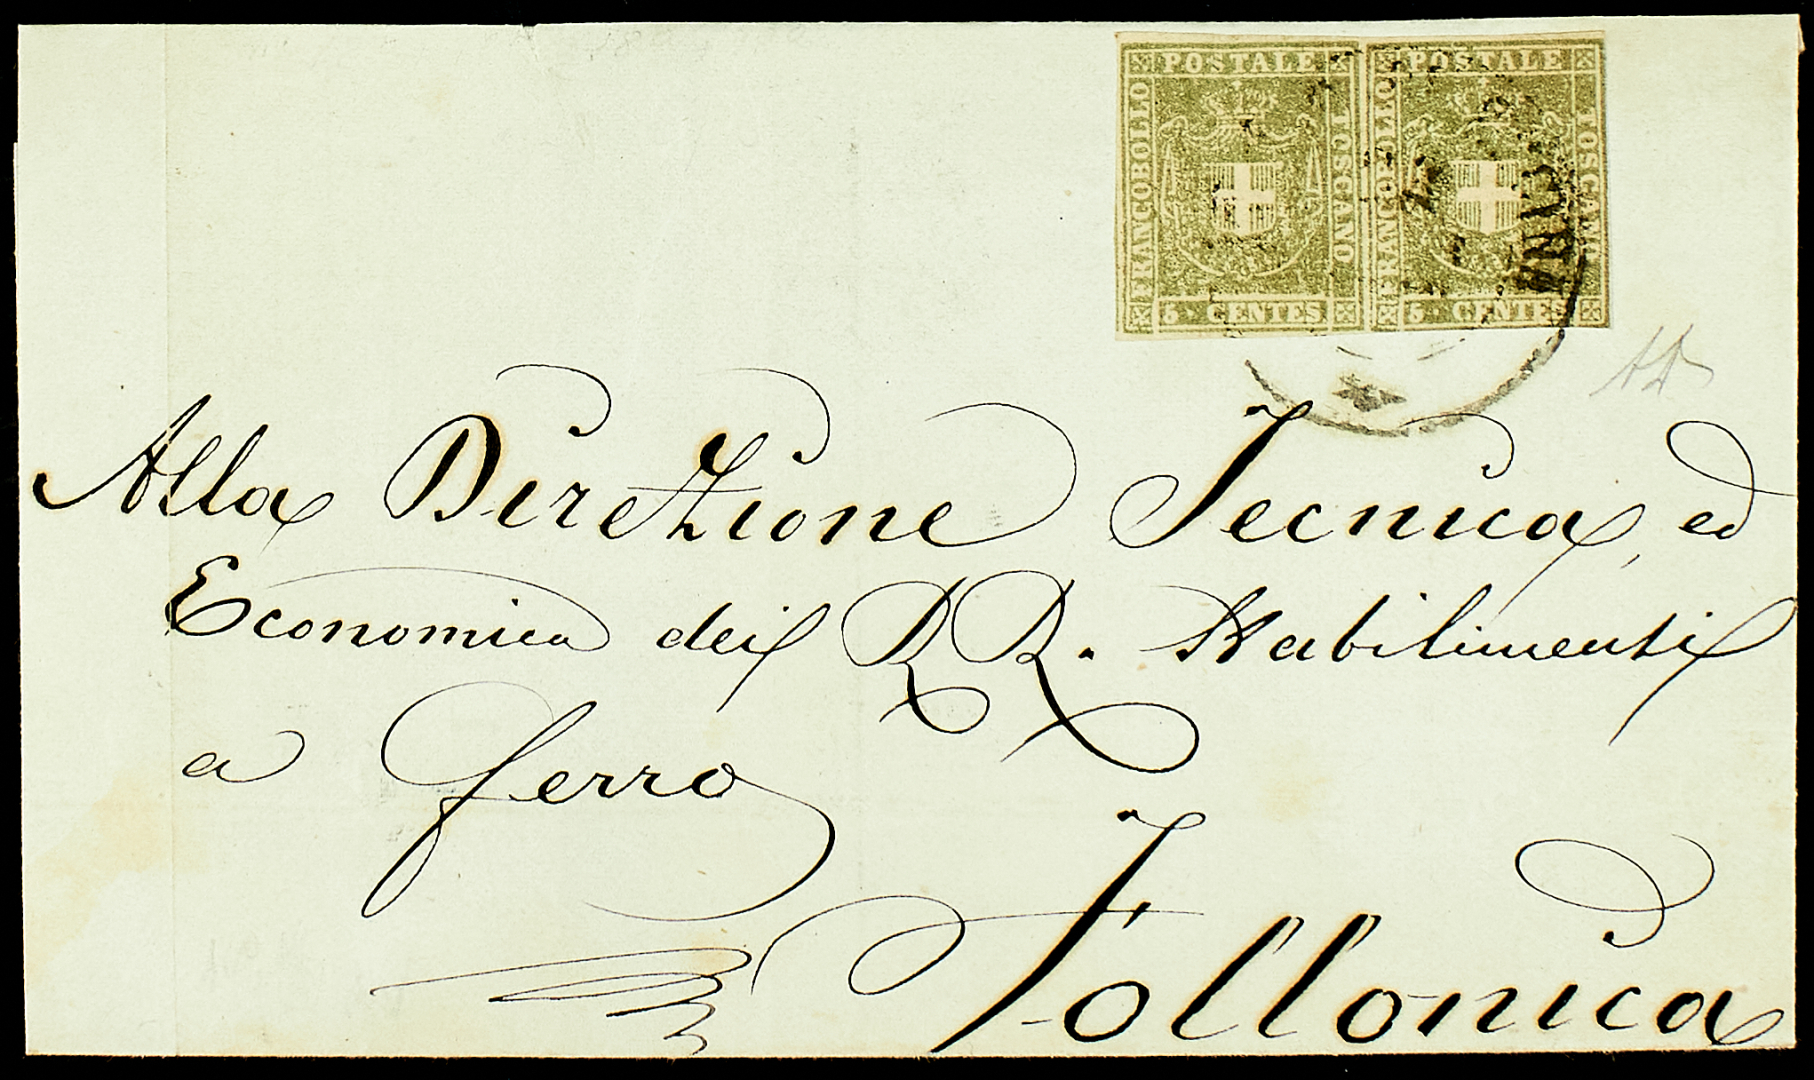 POSTALE POSTALE
FRANCOBOLLO TOSCANO FRANCOBOLLO TOSCANO
5 CENTES. 5 CENTES.
Alla Direzione Tecnica, ed
Economica dei RR. Stabilimenti
a ferro
Follonica